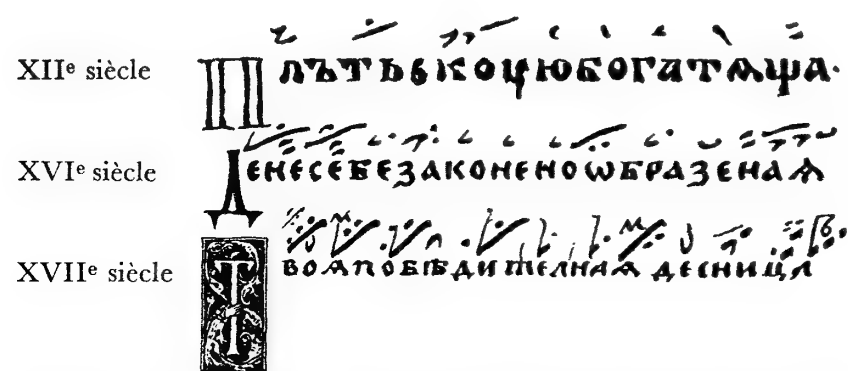 XIIᵉ siècle ПЛЪТЬСКОУЮБОГАТѦЩА·
XVIᵉ siècle ДЕНЕСЕБЕЗАКОНЕНОѠБРАЗЕНАѦ
XVIIᵉ siècle ТВОѦПОБѢДИТЕЛНАѦ ДЕСНИЦА